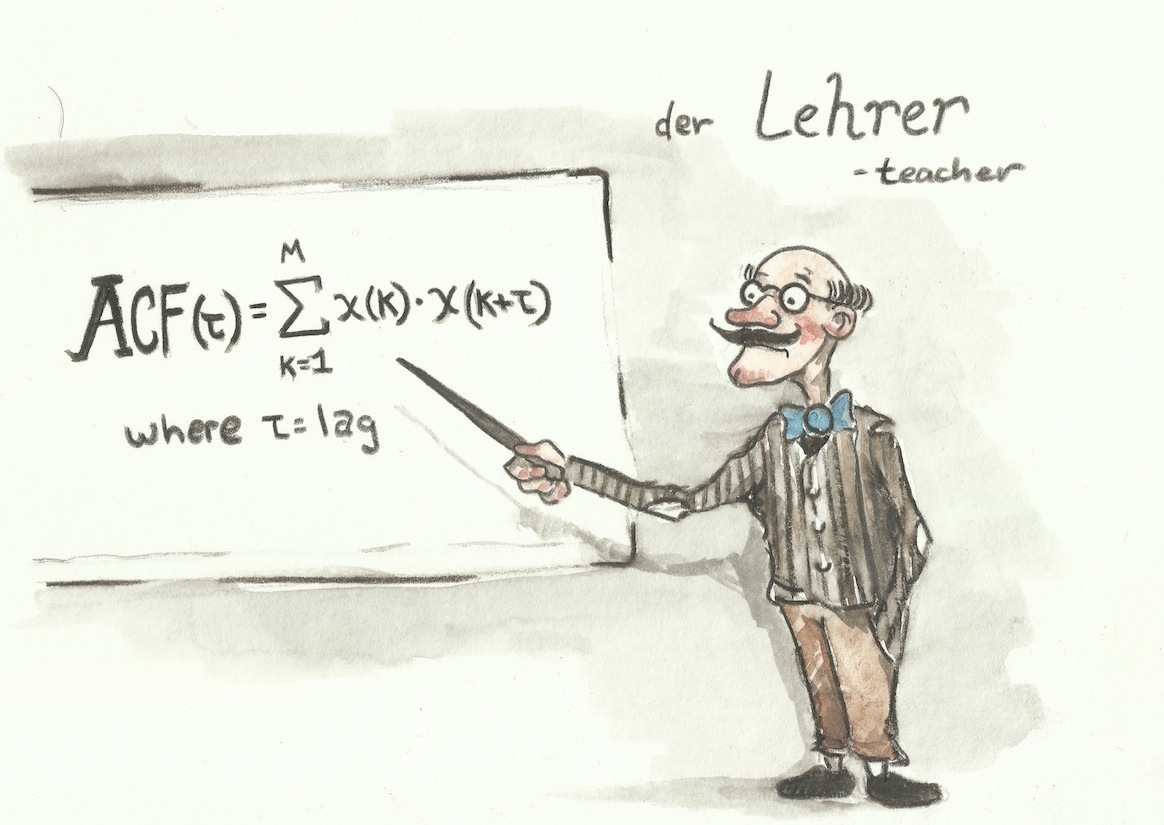 der Lehrer
-teacher
ACF(τ) = M∑k=1 x(k)·x(k+τ)
where τ=lag